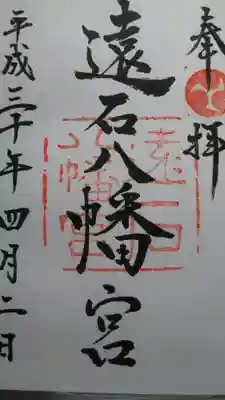 奉拝
遠石八幡宮
平成三十年四月二日